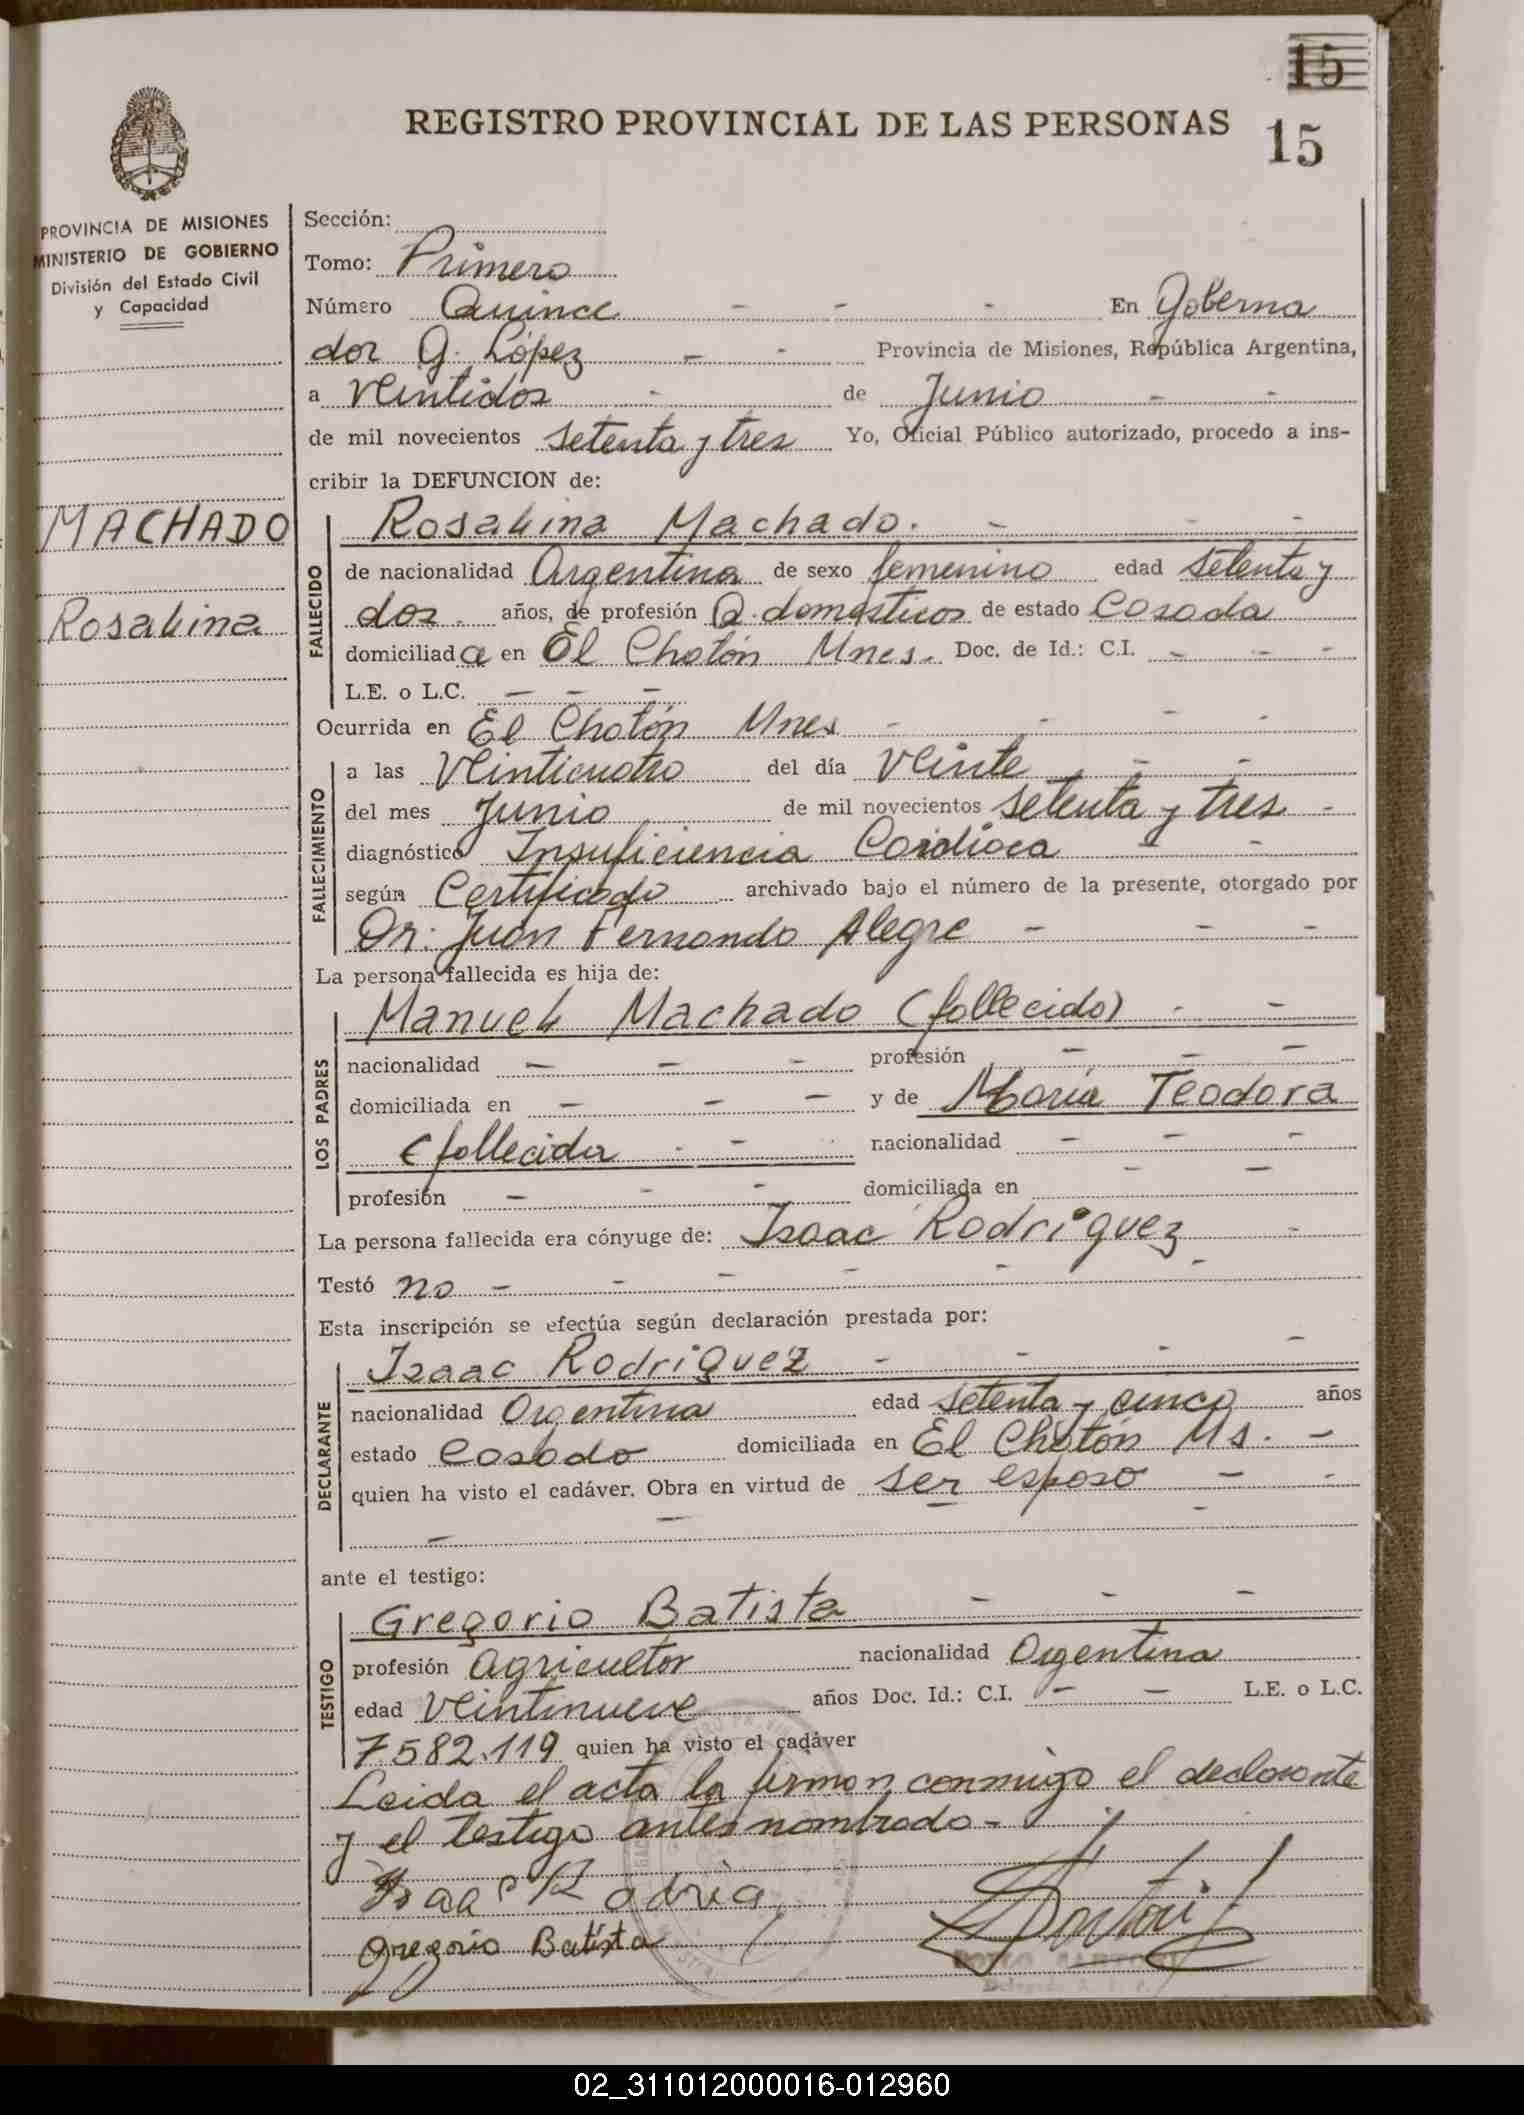 15
REGISTRO PROVINCIAL DE LAS PERSONAS
15
PROVINCIA DE MISIONES
MINISTERIO DE GOBIERNO
División del Estado Civil
y Capacidad
MACHADO
Rosalina
Sección:
Tomo: Primero
Número Quince - - - En Goberna
dor G. López - - Provincia de Misiones, República Argentina,
a veintidos - de Junio - -
de mil novecientos setenta y tres Yo, Oficial Público autorizado, procedo a ins-
cribir la DEFUNCION de:
FALLECIDO
Rosalina Machado. - - -
de nacionalidad Argentina de sexo femenino edad setenta y
dos. años, de profesión Q. domésticos de estado Casada
domiciliada en El Chatón Mnes. Doc. de Id.: C.I. - - -
L.E. o L.C. - - -
Ocurrida en El Chatón Mnes - - - -
FALLECIMIENTO
a las Veinticuatro del día veinte - -
del mes Junio de mil novecientos setenta y tres -
diagnóstico Insuficiencia Cardíaca - -
según Certificado archivado bajo el número de la presente, otorgado por
Dr. Juan Fernando Alegre - - -
La persona fallecida es hija de:
LOS PADRES
Manuel Machado (fallecido) - -
nacionalidad - - - profesión - - -
domiciliada en - - - y de María Teodora
(fallecida - - nacionalidad - - -
profesión - - - domiciliada en - -
La persona fallecida era cónyuge de: Isaac Rodriguez -
Testó no - - - - - -
Esta inscripción se efectúa según declaración prestada por:
DECLARANTE
Isaac Rodriguez - - - -
nacionalidad Argentina edad setenta y cinco años
estado Casado domiciliada en El Chatón Ms. -
quien ha visto el cadáver. Obra en virtud de ser esposo - -
- - -
ante el testigo:
TESTIGO
Gregorio Batista - - -
profesión agricultor nacionalidad Argentina
edad Veintinueve años Doc. Id.: C.I. - - L.E. o L.C.
7.582.119 quien ha visto el cadáver
Leida el acta la firman conmigo el declarante
y el testigo antes nombrado -
Isaac Rodrig
gregorio Batista
02_311012000016-012960